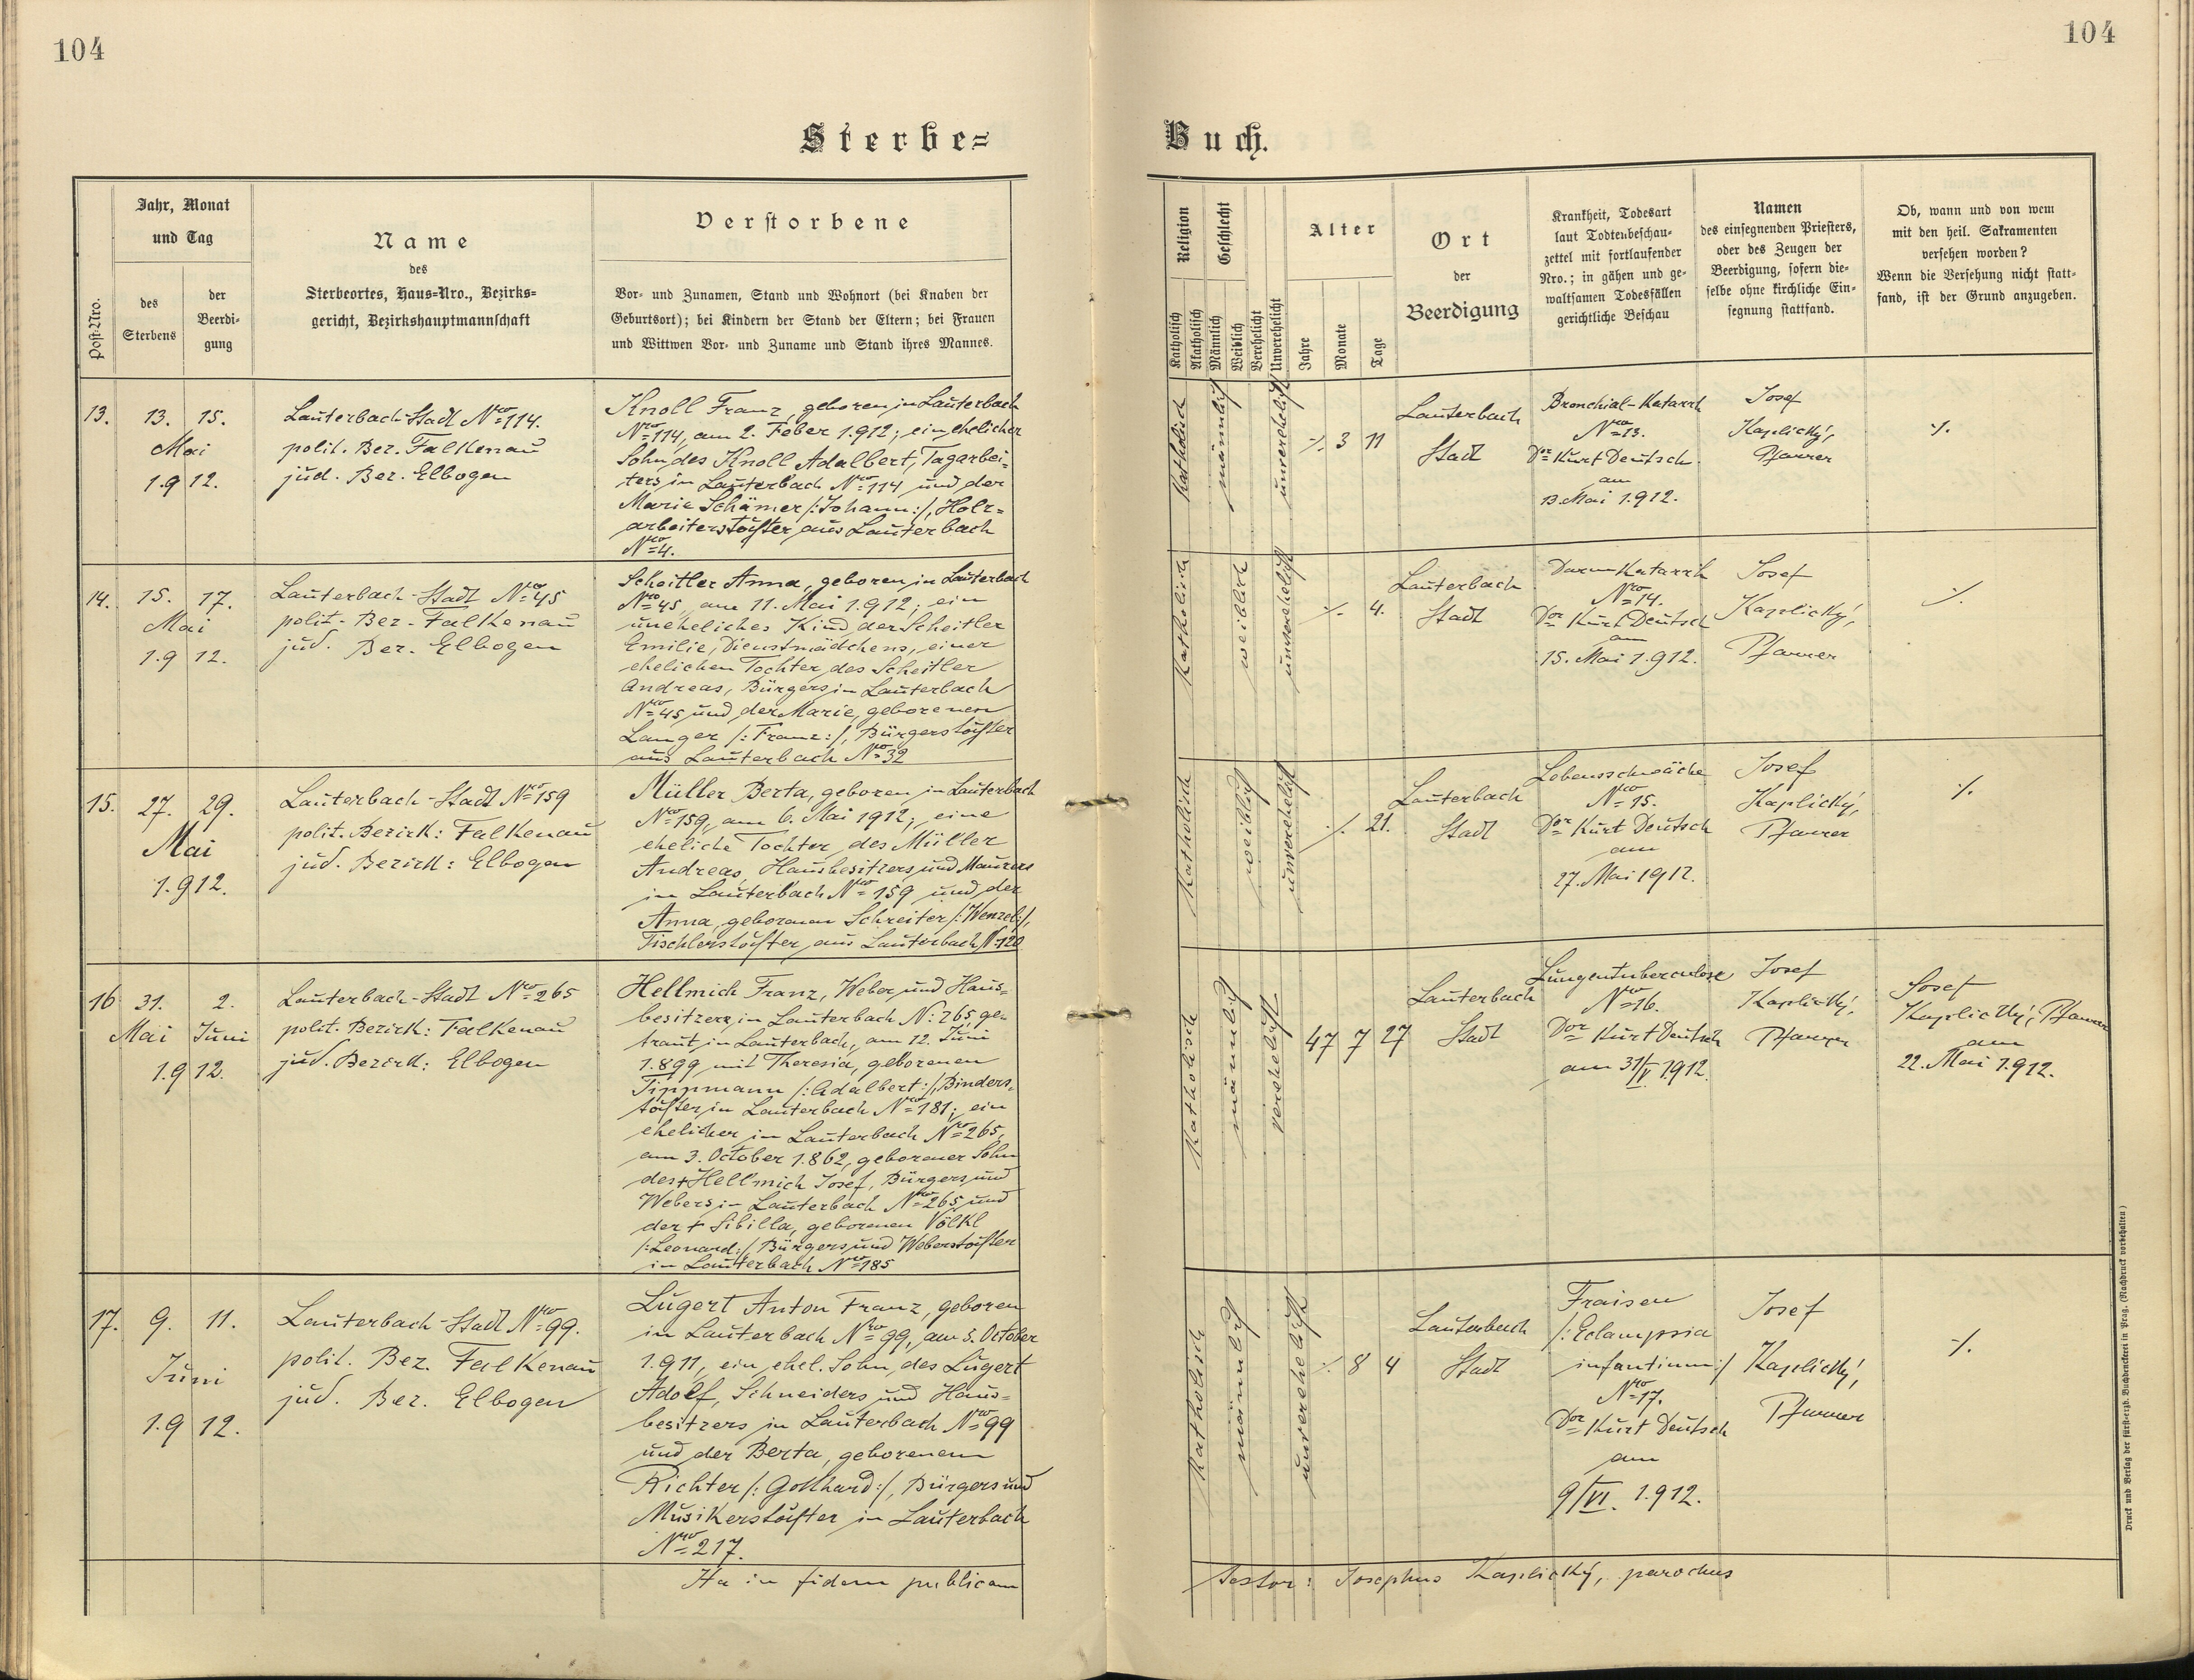 104
104
Sterbe=
Buch.
Post-Nro.
Jahr, Monat
und Tag
des
Sterbens
der
Beerdi-
gung
Name
des
Sterbeortes, Haus-Nro., Bezirks-
gericht, Bezirkshauptmannschaft
Verstorbene
Vor- und Zunamen, Stand und Wohnort (bei Knaben der
Geburtsort); bei Kindern der Stand der Eltern; bei Frauen
und Wittwen Vor- und Zuname und Stand ihres Mannes.
Religion
Katholisch
Akatholisch
Geschlecht
Männlich
Weiblich
Verehelicht
Unverehelicht
Alter
Jahre
Monate
Tage
Ort
der
Beerdigung
Krankheit, Todesart
laut Todtenbeschau-
zettel mit fortlaufender
Nro.; in gähen und ge-
waltsamen Todesfällen
gerichtliche Beschau
Namen
des einsegnenden Priesters,
oder des Zeugen der
Beerdigung, sofern die-
selbe ohne kirchliche Ein-
segnung stattfand.
Ob, wann und von wem
mit den heil. Sakramenten
versehen worden?
Wenn die Versehung nicht statt-
fand, ist der Grund anzugeben.
13.
13. 15.
Mai
1.9 12.
Lauterbach-Stadt Nro 114.
polit. Bez. Falkenau
jud. Bez. Elbogen
Knoll Franz, geboren in Lauterbach
Nro 114, am 2. Feber 1.912; ein ehelicher
Sohn des Knoll Adalbert, Tagarbei=
ters in Lauterbach Nro 114 und der
Marie Schämer /:Johann:/, Holz=
arbeiterstochter aus Lauterbach
Nro 4.
Katholisch
männlich
unverehelicht
./. 3 11
Lauterbach
Stadt
Bronchial-Katarrh
Nro 13.
Dor Kurt Deutsch
am
13. Mai 1.912.
Josef
Kaplický,
Pfarrer
./.
14.
15. 17.
Mai
1.9 12.
Lauterbach-Stadt Nro 45
polit. Bez. Falkenau
jud. Bez. Elbogen
Scheitler Anna, geboren in Lauterbach
Nro 45, am 11. Mai 1.912; ein
uneheliches Kind der Scheitler
Emilie, Dienstmädchens, einer
ehelichen Tochter des Scheitler
Andreas, Bürgers in Lauterbach
Nro 45 und der Marie, geborenen
Langer /:Franz:/, Bürgerstochter
aus Lauterbach Nro 32
Katholisch
weiblich
unverehelicht
./. 4.
Lauterbach
Stadt
Darm-Katarrh
Nro 14.
Dor Kurt Deutsch
am
15. Mai 1.912.
Josef
Kaplický,
Pfarrer
./.
15.
27. 29.
Mai
1.9 12.
Lauterbach-Stadt Nro 159
polit. Bezirk: Falkenau
jud. Bezirk: Elbogen
Müller Berta, geboren in Lauterbach
Nro 159, am 6. Mai 1912; eine
eheliche Tochter des Müller
Andreas, Hausbesitzers und Maurers
in Lauterbach Nro 159 und der
Anna, geborenen Schreiter /:Wenzel:/,
Tischlerstochter aus Lauterbach N: 120
Katholisch
weiblich
unverehelicht
./. 21.
Lauterbach
Stadt
Lebensschwäche
Nro 15.
Dor Kurt Deutsch
am
27. Mai 1912.
Josef
Kaplický,
Pfarrer
./.
16
31. 2.
Mai Juni
1.9 12.
Lauterbach-Stadt Nro 265
polit. Bezirk: Falkenau
jud. Bezirk: Elbogen
Hellmich Franz, Weber und Haus=
besitzers in Lauterbach N: 265 ge=
traut in Lauterbach, am 12. Juni
1.899 mit Theresia, geborenen
Tippmann /:Adalbert:/, Binders=
tochter in Lauterbach Nro 181; ein
ehelicher in Lauterbach Nro 265,
am 3. October 1.862, geborener Sohn
des + Hellmich Josef, Bürgers und
Webers in Lauterbach Nro 265 und
der + Sibilla, geborenen Völkl
/:Leonard:/, Bürgers und Weberstochter
in Lauterbach Nro 185
Katholisch
männlich
verehelicht
47 7 27
Lauterbach
Stadt
Lungentuberculose
Nro 16.
Dor Kurt Deutsch
am 31/V. 1.912.
Josef
Kaplický,
Pfarrer
Josef
Kaplický, Pfarrer
am
22. Mai 1.912.
17.
9. 11.
Juni
1.9 12.
Lauterbach-Stadt Nro 99.
polit. Bez. Falkenau
jud. Bez. Elbogen
Lugert Anton Franz, geboren
in Lauterbach Nro 99, am 5. October
1.911, ein ehel. Sohn des Lugert
Adolf, Schneiders und Haus=
besitzers in Lauterbach Nro 99
und der Berta, geborenen
Richter /:Gotthard:/, Bürgers und
Musikerstochter in Lauterbach
Nro 217.
Katholisch
männlich
unverehelicht
./. 8 4
Lauterbach
Stadt
Fraisen
/:Eclampsia
infantium:/
Nro 17.
Dor Kurt Deutsch
am
9/VI. 1.912.
Josef
Kaplický,
Pfarrer
./.
Ita in fidem publicam
testor: Josephus Kaplický, parochus
Druck und Verlag der fürst-erzb. Buchdruckerei in Prag. (Nachdruck vorbehalten)